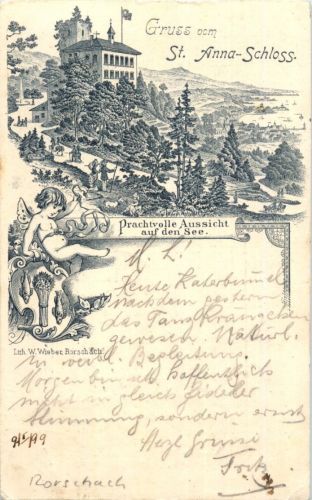 Gruss vom
St. Anna-Schloss.
Prachtvolle Aussicht
auf den See.
M. L.
Heute Katerbummel
nachdem gestern
das Tanzkränzchen
gewesen. Natürl.
in weibl. Begleitung.
Morgen bin ich hoffentlich
nicht in gleich fideler
Stimmung, sondern ernst
Herzl Grüsse
Fritz
Lith. W. Weber, Rorschach.
Rorschach